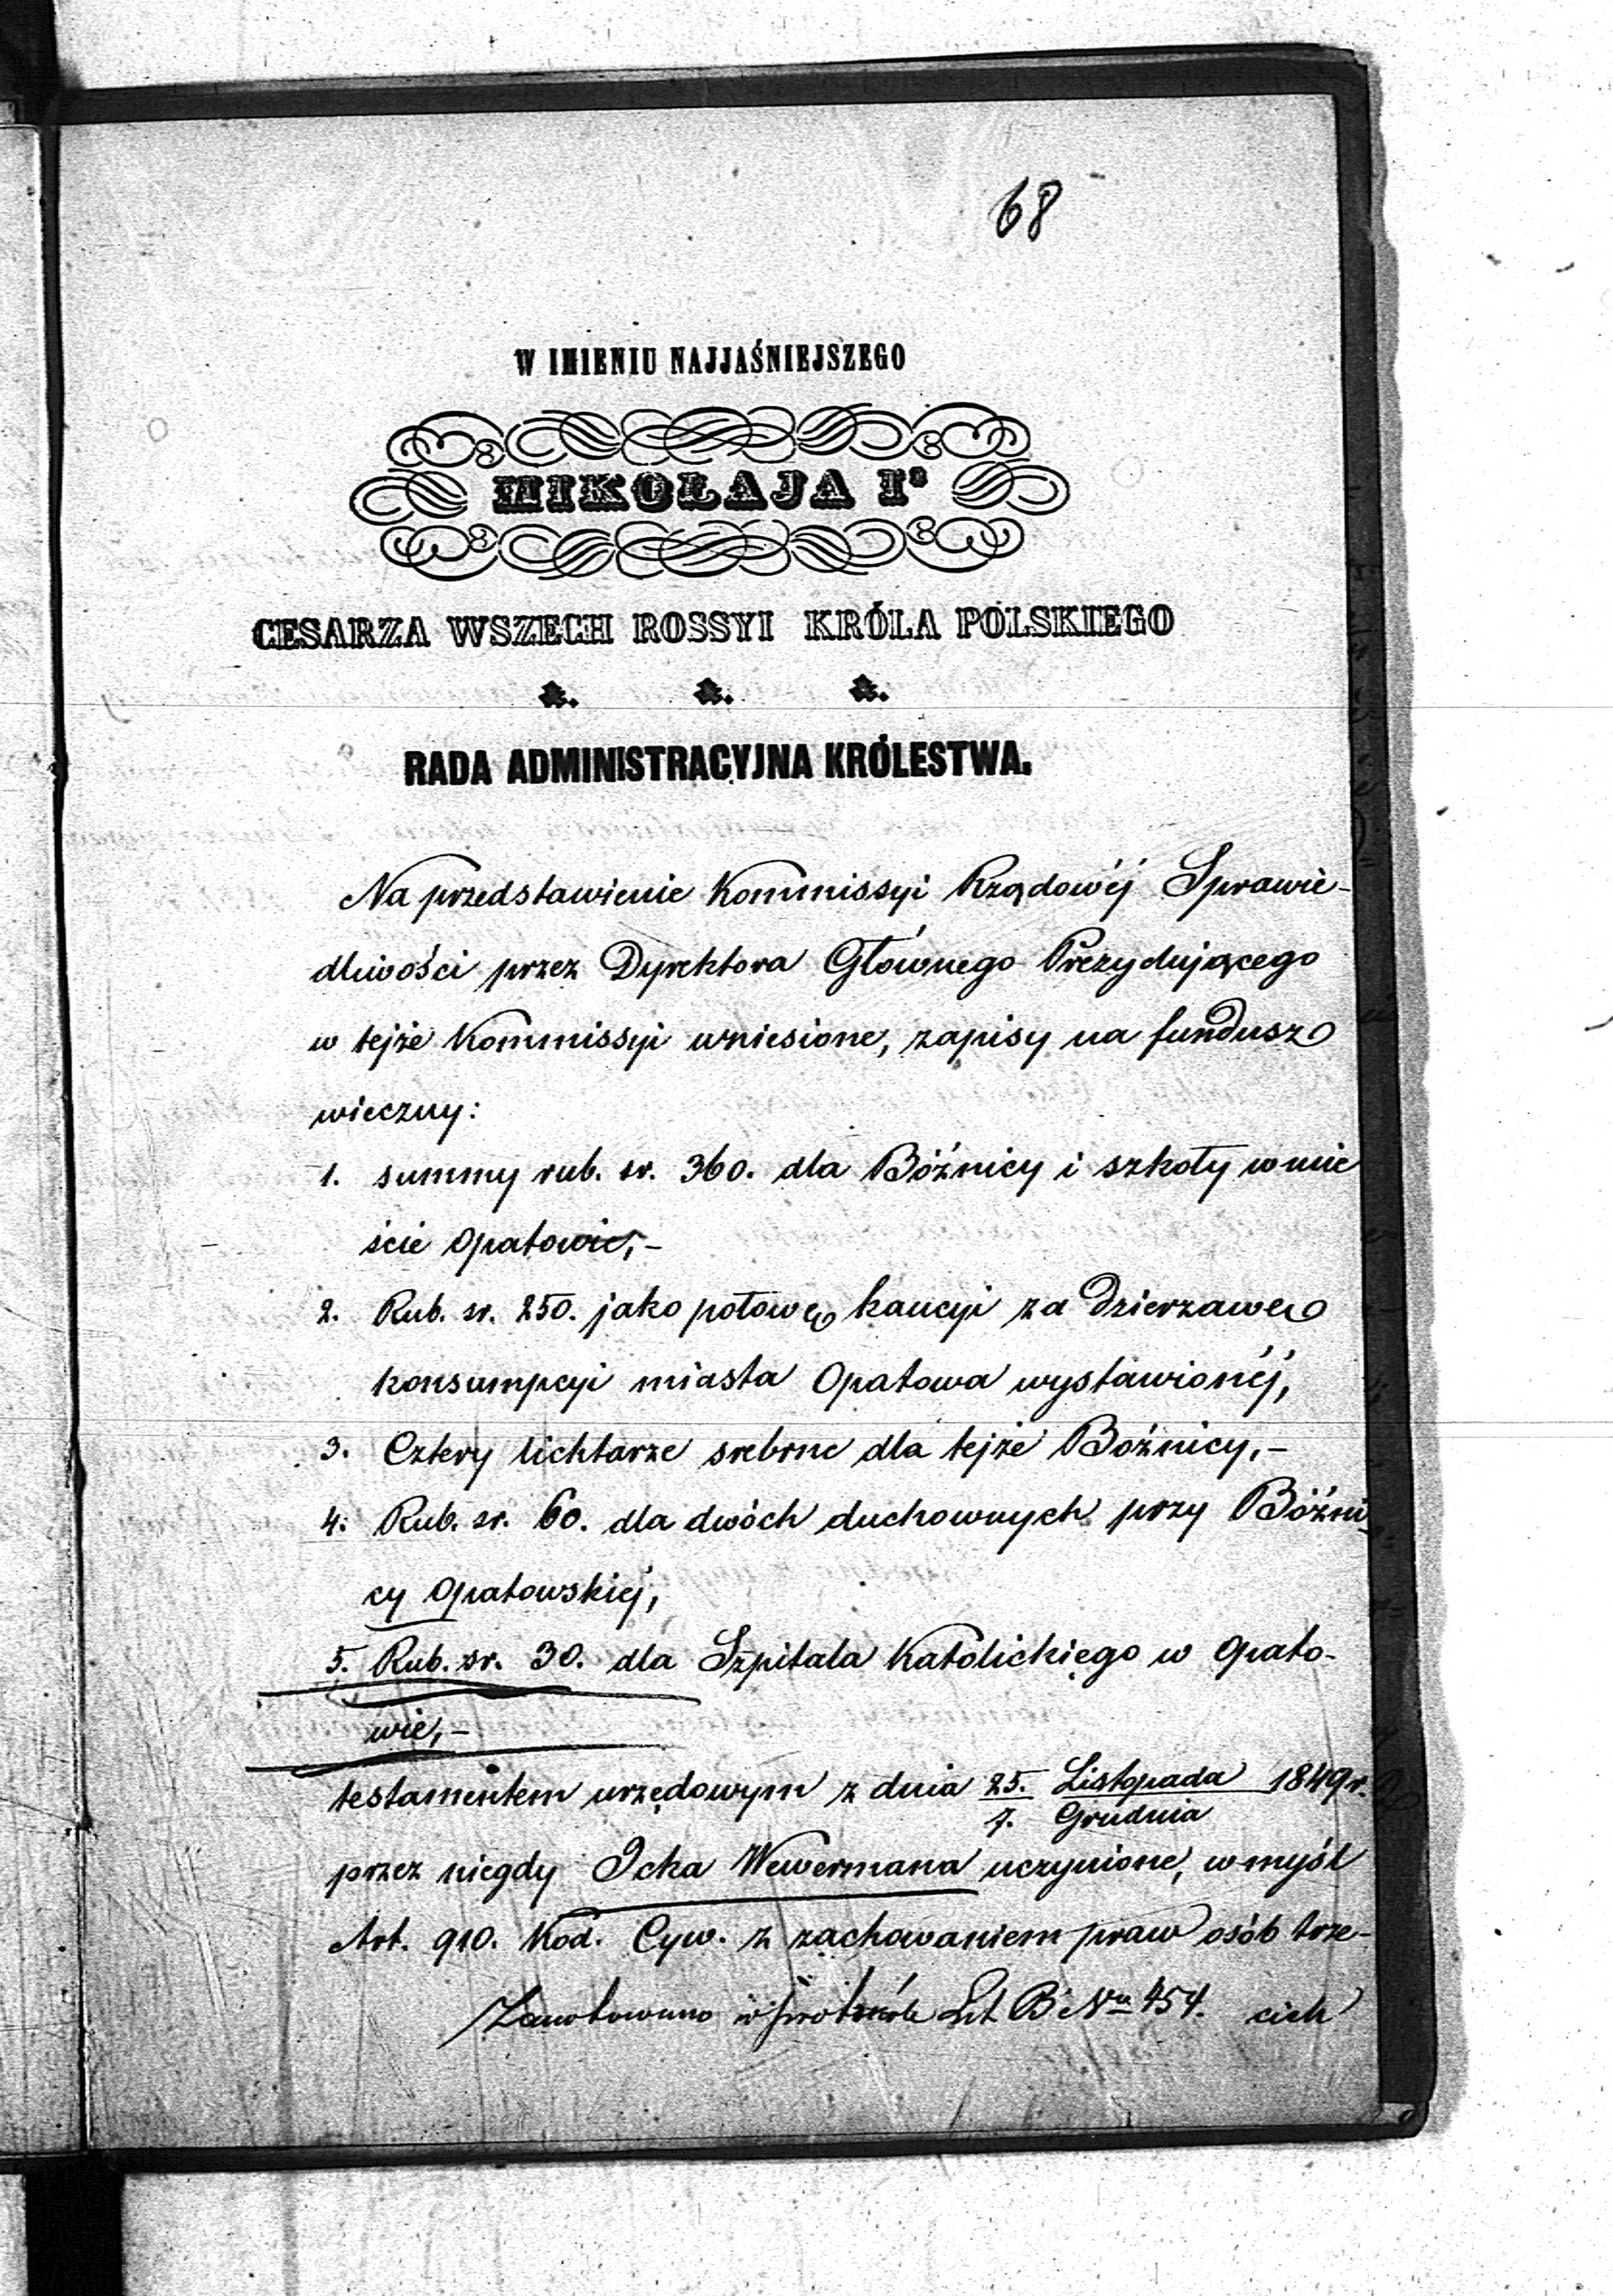 68
W IMIENIU NAJJAŚNIEJSZEGO
MIKOŁAJA Iº
CESARZA WSZECH ROSSYI KRÓLA POLSKIEGO
&. &. &.
RADA ADMINISTRACYJNA KRÓLESTWA.
Na przedstawienie Kommissyi Rządowéj Sprawie-
dliwości przez Dyrektora Głównego Prezydującego
w tejże Kommissyi wniesione, zapisy na fundusz
wieczny:
1. summy rub. sr. 360. dla Bóźnicy i szkoły w mie
ście Opatowie,-
2. Rub. sr. 250. jako połowę kaucyi za Dzierzawę
konsumpcyi miasta Opatowa wystawionéj,
3. Cztery lichtarze srebrne dla tejże Boźnicy,-
4. Rub. sr. 60. dla dwóch duchownych przy Bóźni-
cy Opatowskiéj,
5. Rub. sr. 30. dla Szpitala Katolickiego w Opato-
wie,-
testamentem urzędowym z dnia 25. Listopada 1849 r.
7. Grudnia
przez niegdy Icka Wewermana uczynione, w myśl
Art. 910. Kod. Cyw. z zachowaniem praw osób trze-
Zanotowano w protokóle Lit B Nro 454. cich